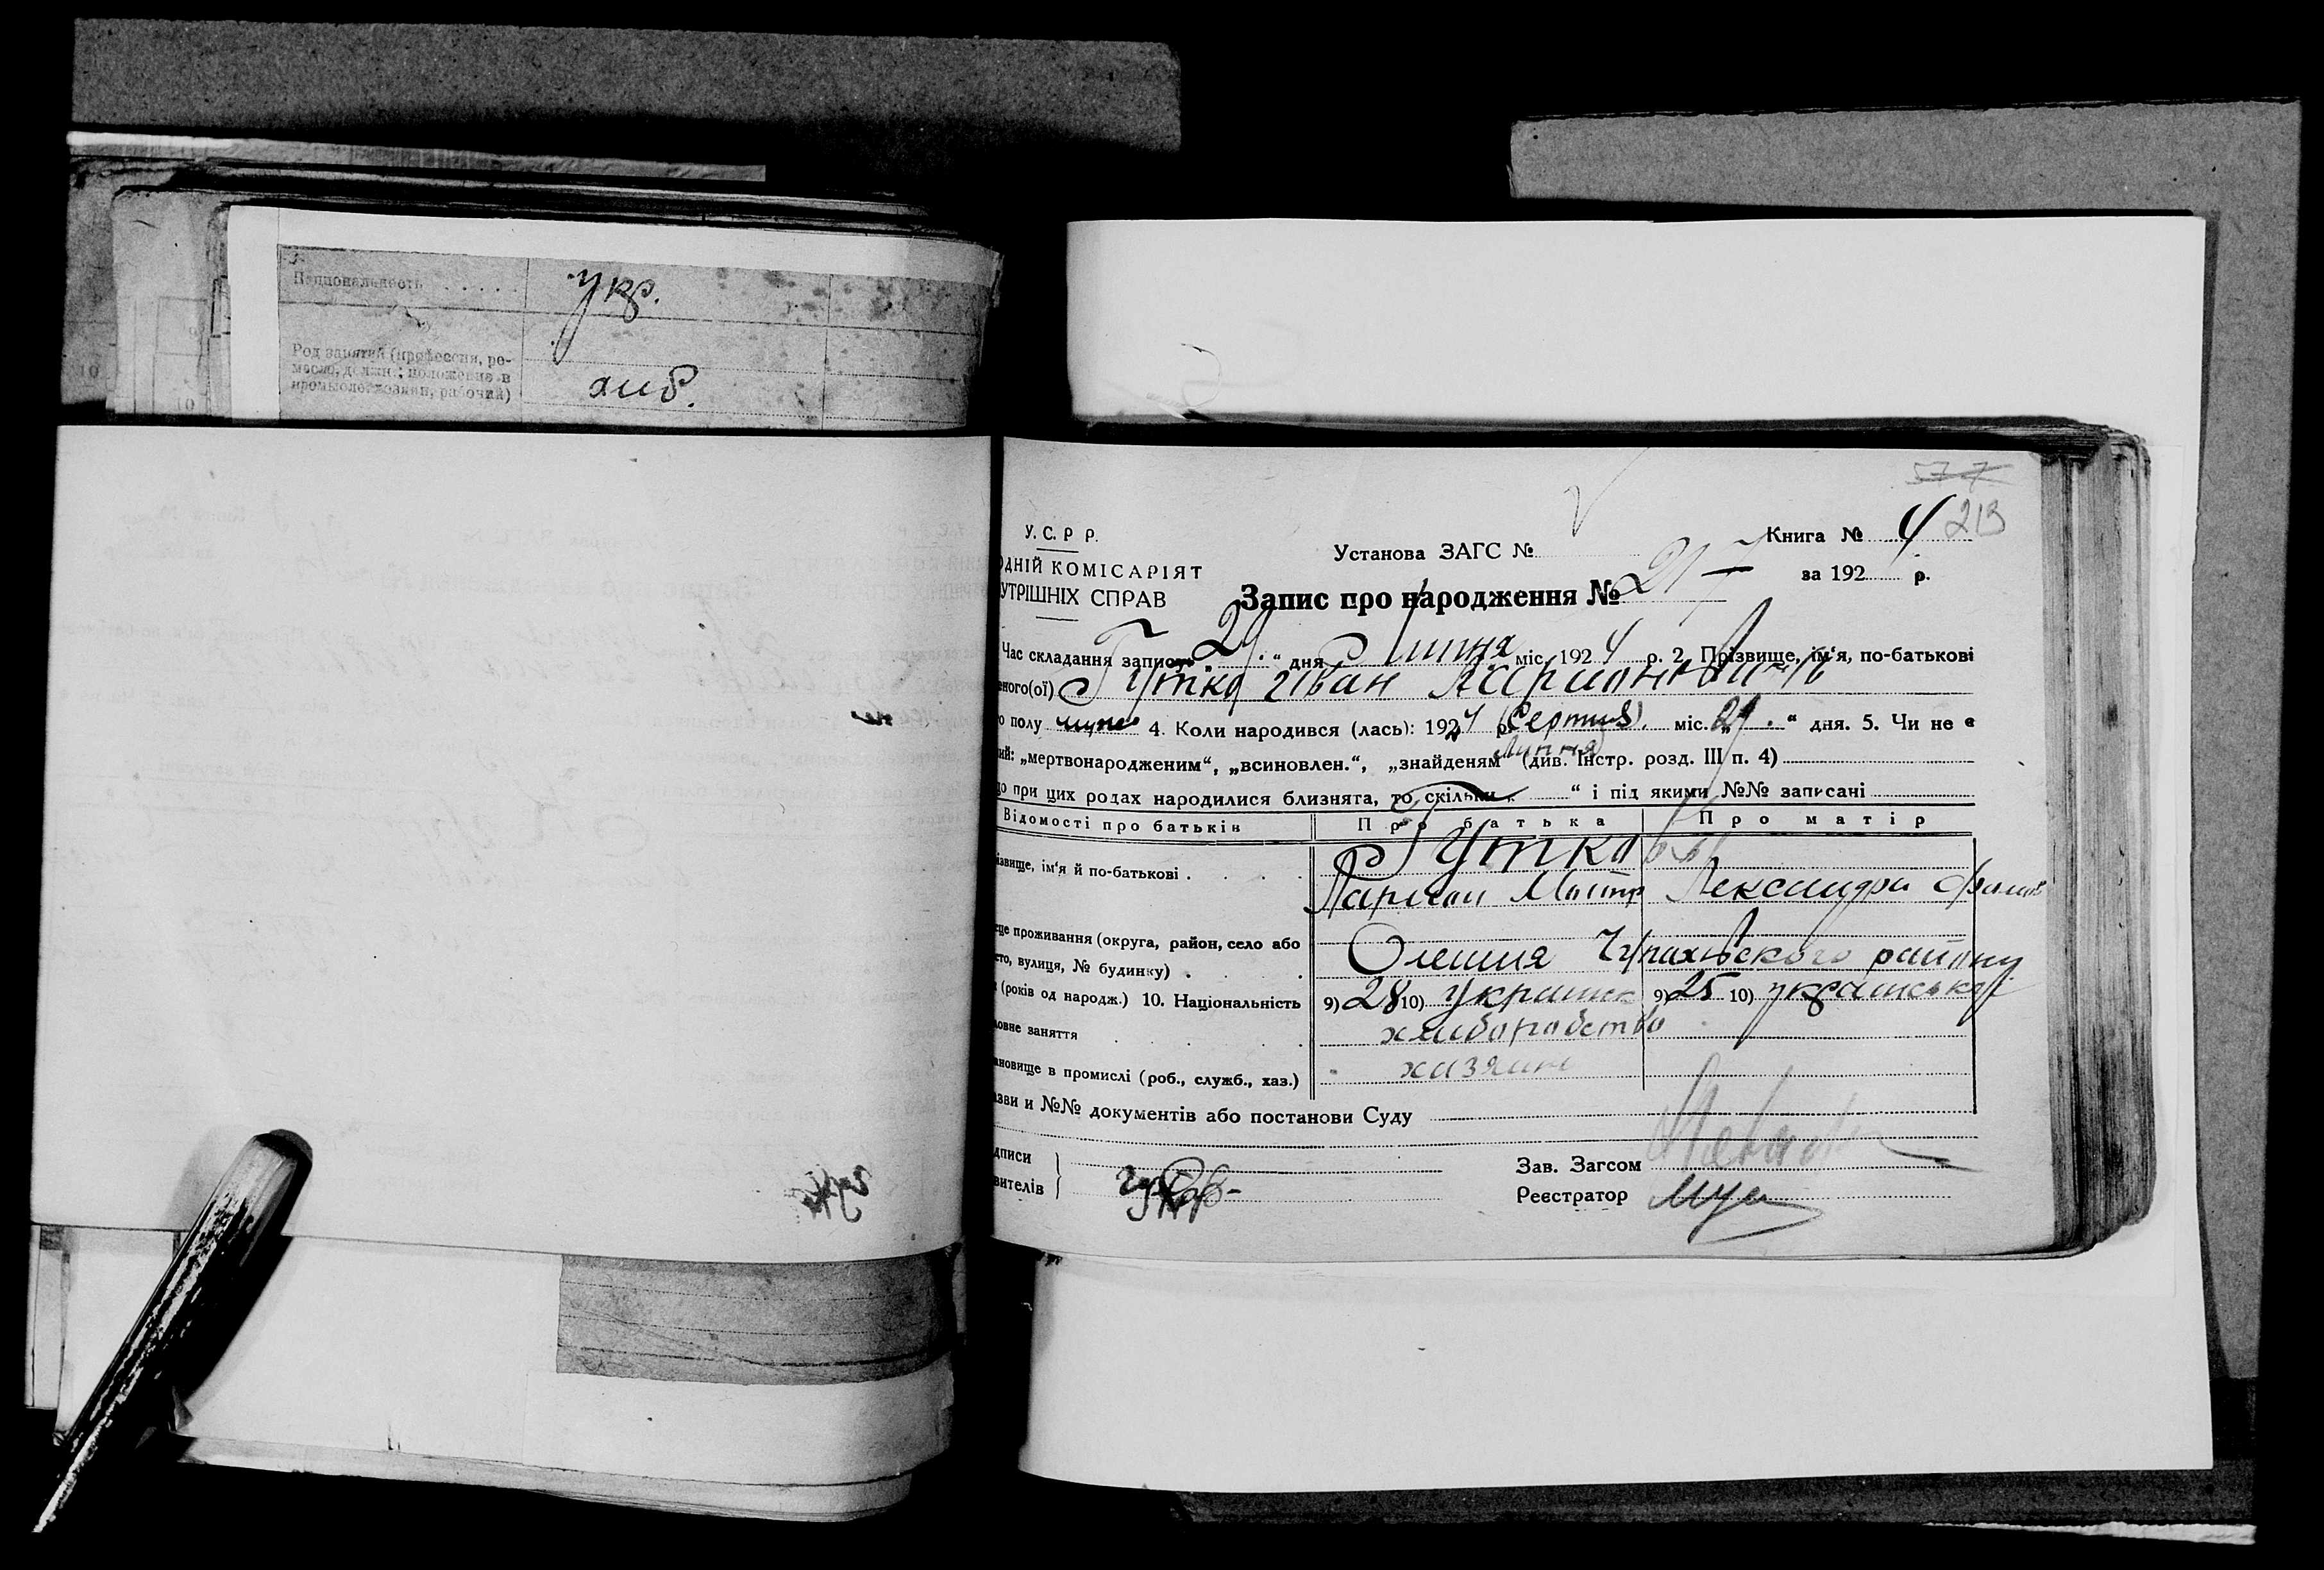 Национальность . . . . . укр.
Род занятий (профессия, ре-
месло, должн.; положение в
промысле: хозяин, рабочий) хліб.
10
10
577
У. С. Р. Р.
Установа ЗАГС №
Книга № 4 213
ОДНІЙ КОМІСАРІЯТ
за 192 р.
УТРІШНІХ СПРАВ
Запис про народження № 217
Час складання запису „29.“ дня Липня міс. 1924 р. 2. Прізвище, ім'я, по-батькові
ного(ої) Гутко Іван
о полу 4. Коли народився (лась): 1924 р. (Серпня). міс. „29.“ дня. 5. Чи не є
Липня
ий: „мертвонародженим“, „всиновлен.“, „знайденям“ (див. Інстр. розд. III п. 4)
що при цих родах народилися близнята, то скільки „ “ і під якими №№ записані
Відомості про батьків Про батька Про матір
ізвище, ім'я й по-батькові . Гутко
Ларион Лександра
це проживання (округа, район, село або
сто, вулиця, № будинку) . Олешня району
(років од народж.) 10. Національність 9) 28 10) україн 9) 25 10) українська
овне заняття хлиборобство
ановище в промислі (роб., служб., хаз.) хазяин
азви и №№ документів або постанови Суду
дписи
вителів
Зав. Загсом
Реєстратор